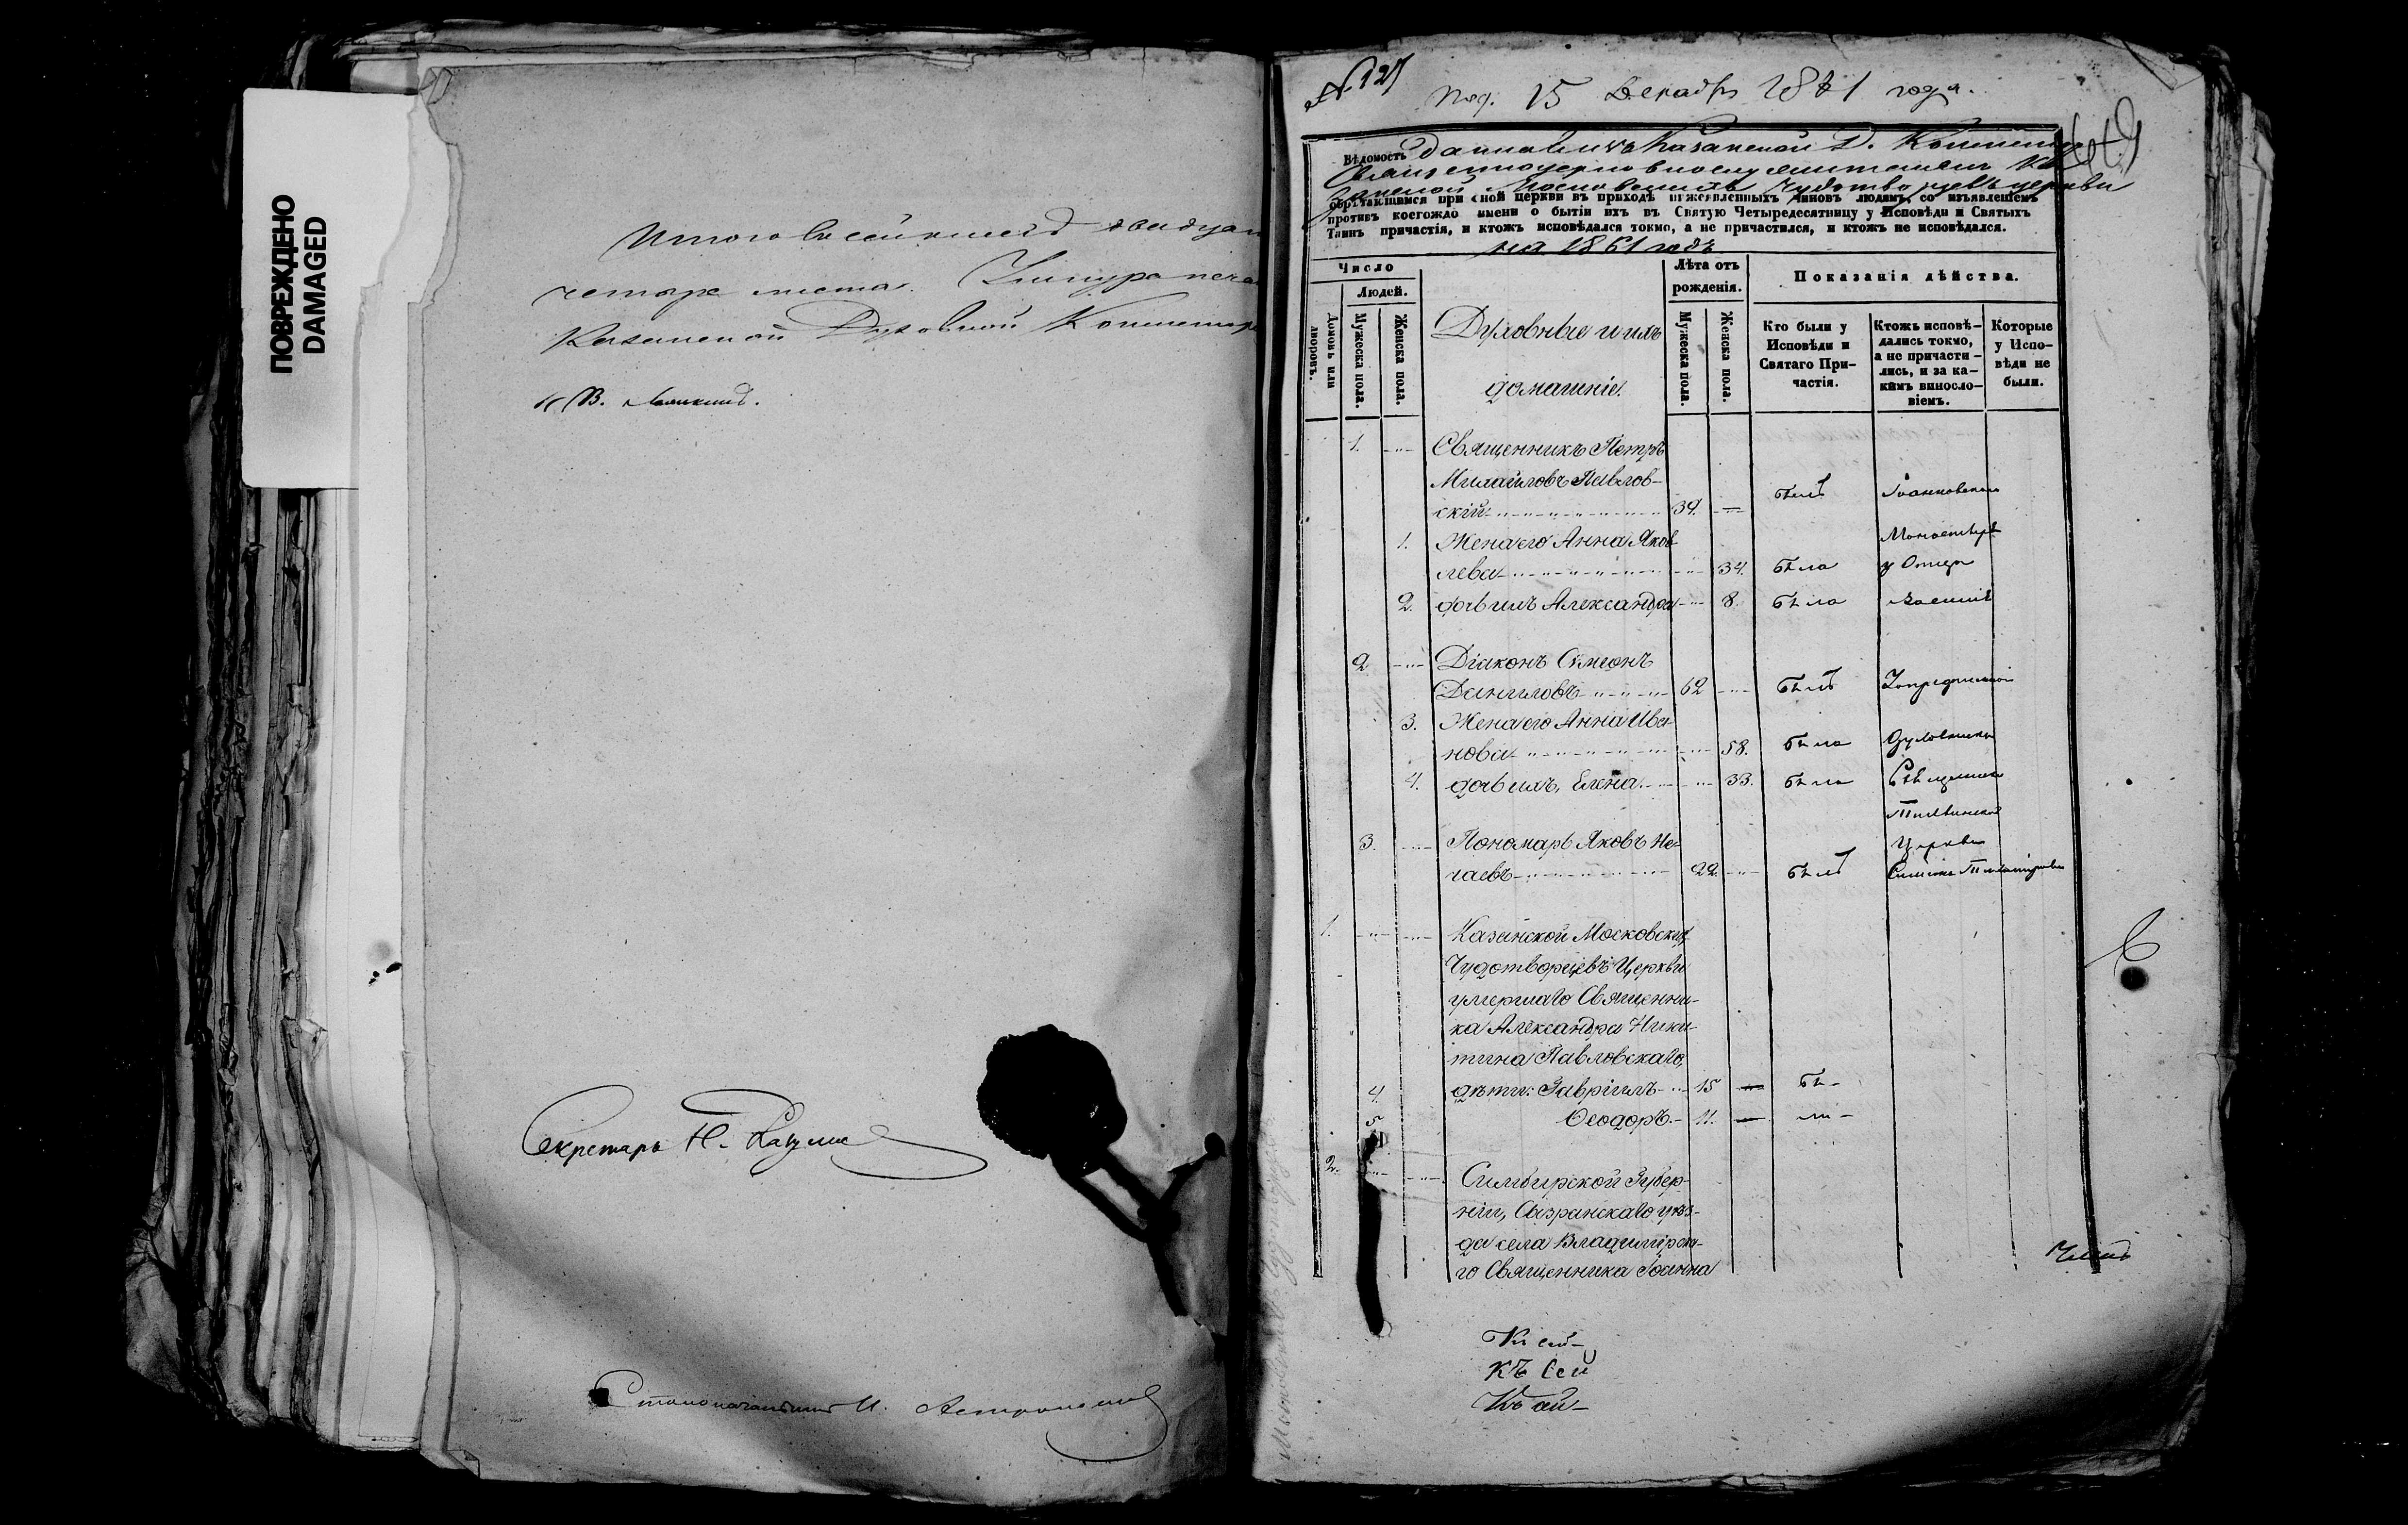 ПОВРЕЖДЕНО
DAMAGED
Итого въ сей книге
четыре листа.
Казанской Духовной Консистор
Секретарь Н.
Столоначальникъ И.
№ 127
15 Декабря 1861 года.
Вѣдомость данная изъ Казанской Д. Консистор
Священноцерковнослужителямъ Ка
занской Московскихъ Чудотворцевъ церкви
обрѣтающимся при оной церкви въ приходѣ нижеявленныхъ чиновъ людямъ, со изъявленіемъ
противъ коегождо имени о бытіи ихъ въ Святую Четыредесятницу у Исповѣди и Святыхъ
Таинъ причастія, и ктожъ исповѣдался токмо, а не причастился, и ктожъ не исповѣдался.
на 1861 годъ
Число
Людей.
Домовъ или дворовъ.
Мужеска пола.
Женска пола.
Духовные и ихъ
домашніе.
Лѣта отъ
рожденія.
Мужеска пола.
Женска пола.
Показанія дѣйства.
Кто были у
Исповѣди и
Святаго При-
частія.
Ктожъ исповѣ-
дались токмо,
а не причасти-
лись, и за ка-
кимъ винносло-
віемъ.
Которые
у Испо-
вѣди не
были.
1. Священникъ Петръ
Михайловъ Павлов-
скій 39. былъ Іоанновскаго
1. Жена его Анна Яков Монастыр
лева 34. была у Отца
2. дочь ихъ Александра 8. была
2 Діаконъ Симеонъ
Даниловъ 62 былъ
3. Жена его Анна Ива-
нова 58. была Духовника
4. дочь ихъ, Елена 33. была Священника
Тихвинской
3. Пономарь Яковъ Не- Церкви
гаевъ 22. былъ
1. Казанской Московскихъ
Чудотворцевъ Церкви
умершаго Священни-
ка Александра Ники-
тина Павловскаго,
4. дѣти: Гавріилъ 15 бы-
5 Ѳеодоръ. 11. ли
2. Симбирской Губер-
ніи, Сызранскаго уѣз-
да села Владимірска-
го Священника Іоанна
Къ сей
Къ Сей
Къ сей